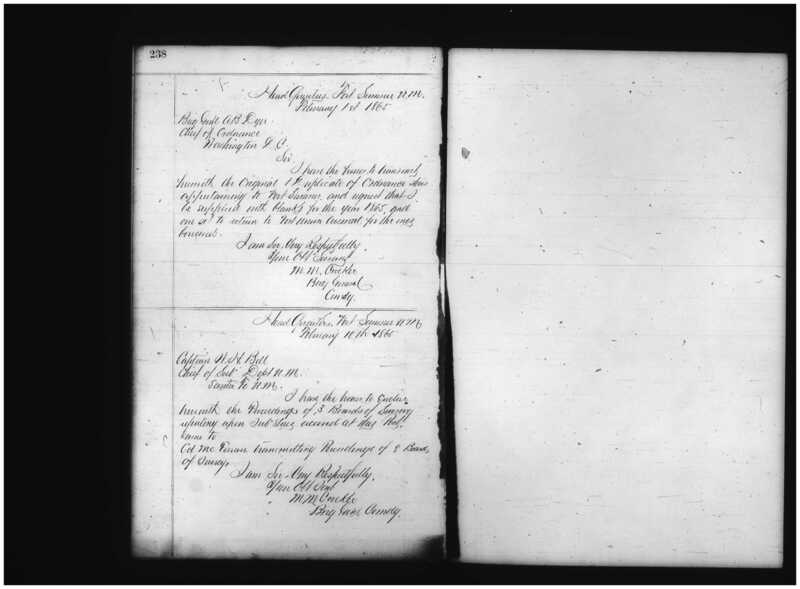 238
Head Quarters, Fort Sumner N.M.
February 1st 1865
Brig Genl A.B. Dyer
Chief of Ordnance
Washington D.C.
Sir
I have the honor to transmit
herewith the Original of Ordnance
appertaining to Fort Sumner, and request that I
be supplied with blanks for the year 1865, and
one to return to Fort Union Arsenal for the ones
borrowed.
I am Sir Very Respectfully
Your Obt Servant
M.M. Crocker
Brig General
Comdy.
Head Quarters, Fort Sumner N.M.
February 10th 1865
Captain W.H. Bell
Chief of Sub Dept N.M.
Santa Fe N.M.
I have the honor to enclose
herewith the Proceedings of 3 Boards of Survey
upon Sub at this Post.
Same to
Col Mc transmitting Proceedings of 2 Boards
of Survey
I am Sir Very Respectfully
Your Obt Servt
M M Crocker
Brig Genl Comdg.